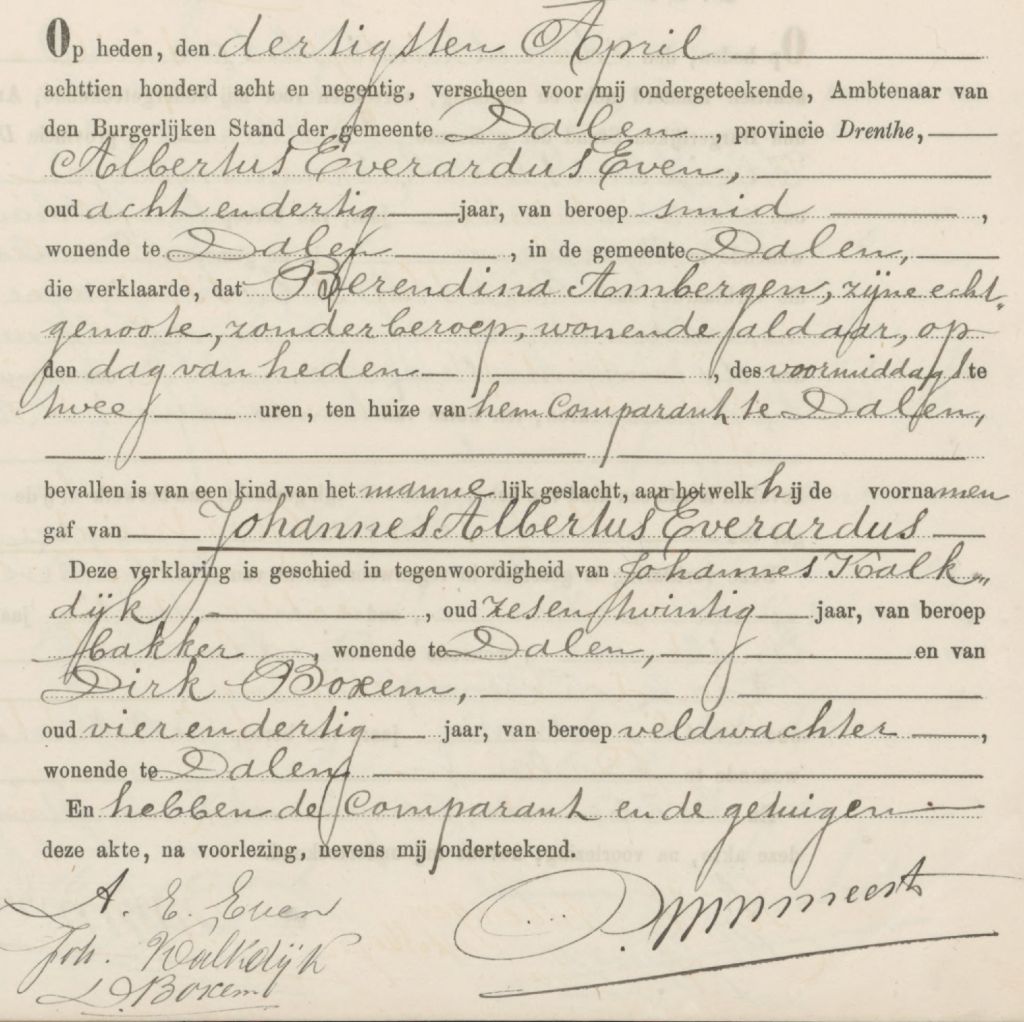 Op heden, den dertigsten April
achttien honderd acht en negentig, verscheen voor mij ondergeteekende, Ambtenaar van
den Burgerlijken Stand der gemeente Dalen, provincie Drenthe,
Albertus Everardus Even,
oud acht en dertig jaar, van beroep smid,
wonende te Dalen, in de gemeente Dalen,
die verklaarde, dat Berendina Ambergen, zijne echt-
genoote, zonder beroep, wonende aldaar, op
den dag van heden, des voormiddags te
twee uren, ten huize van hem Comparant te Dalen,
bevallen is van een kind van het mannelijk geslacht, aan hetwelk hij de voornamen
gaf van Johannes Albertus Everardus
Deze verklaring is geschied in tegenwoordigheid van Johannes Kalk-
dijk, oud zes en twintig jaar, van beroep
bakker, wonende te Dalen, en van
Dirk Boxem,
oud vier en dertig jaar, van beroep veldwachter,
wonende te Dalen
En hebben de Comparant en de getuigen
deze akte, na voorlezing, nevens mij onderteekend.
A. E. Even
Joh. Kalkdijk
D. Boxem